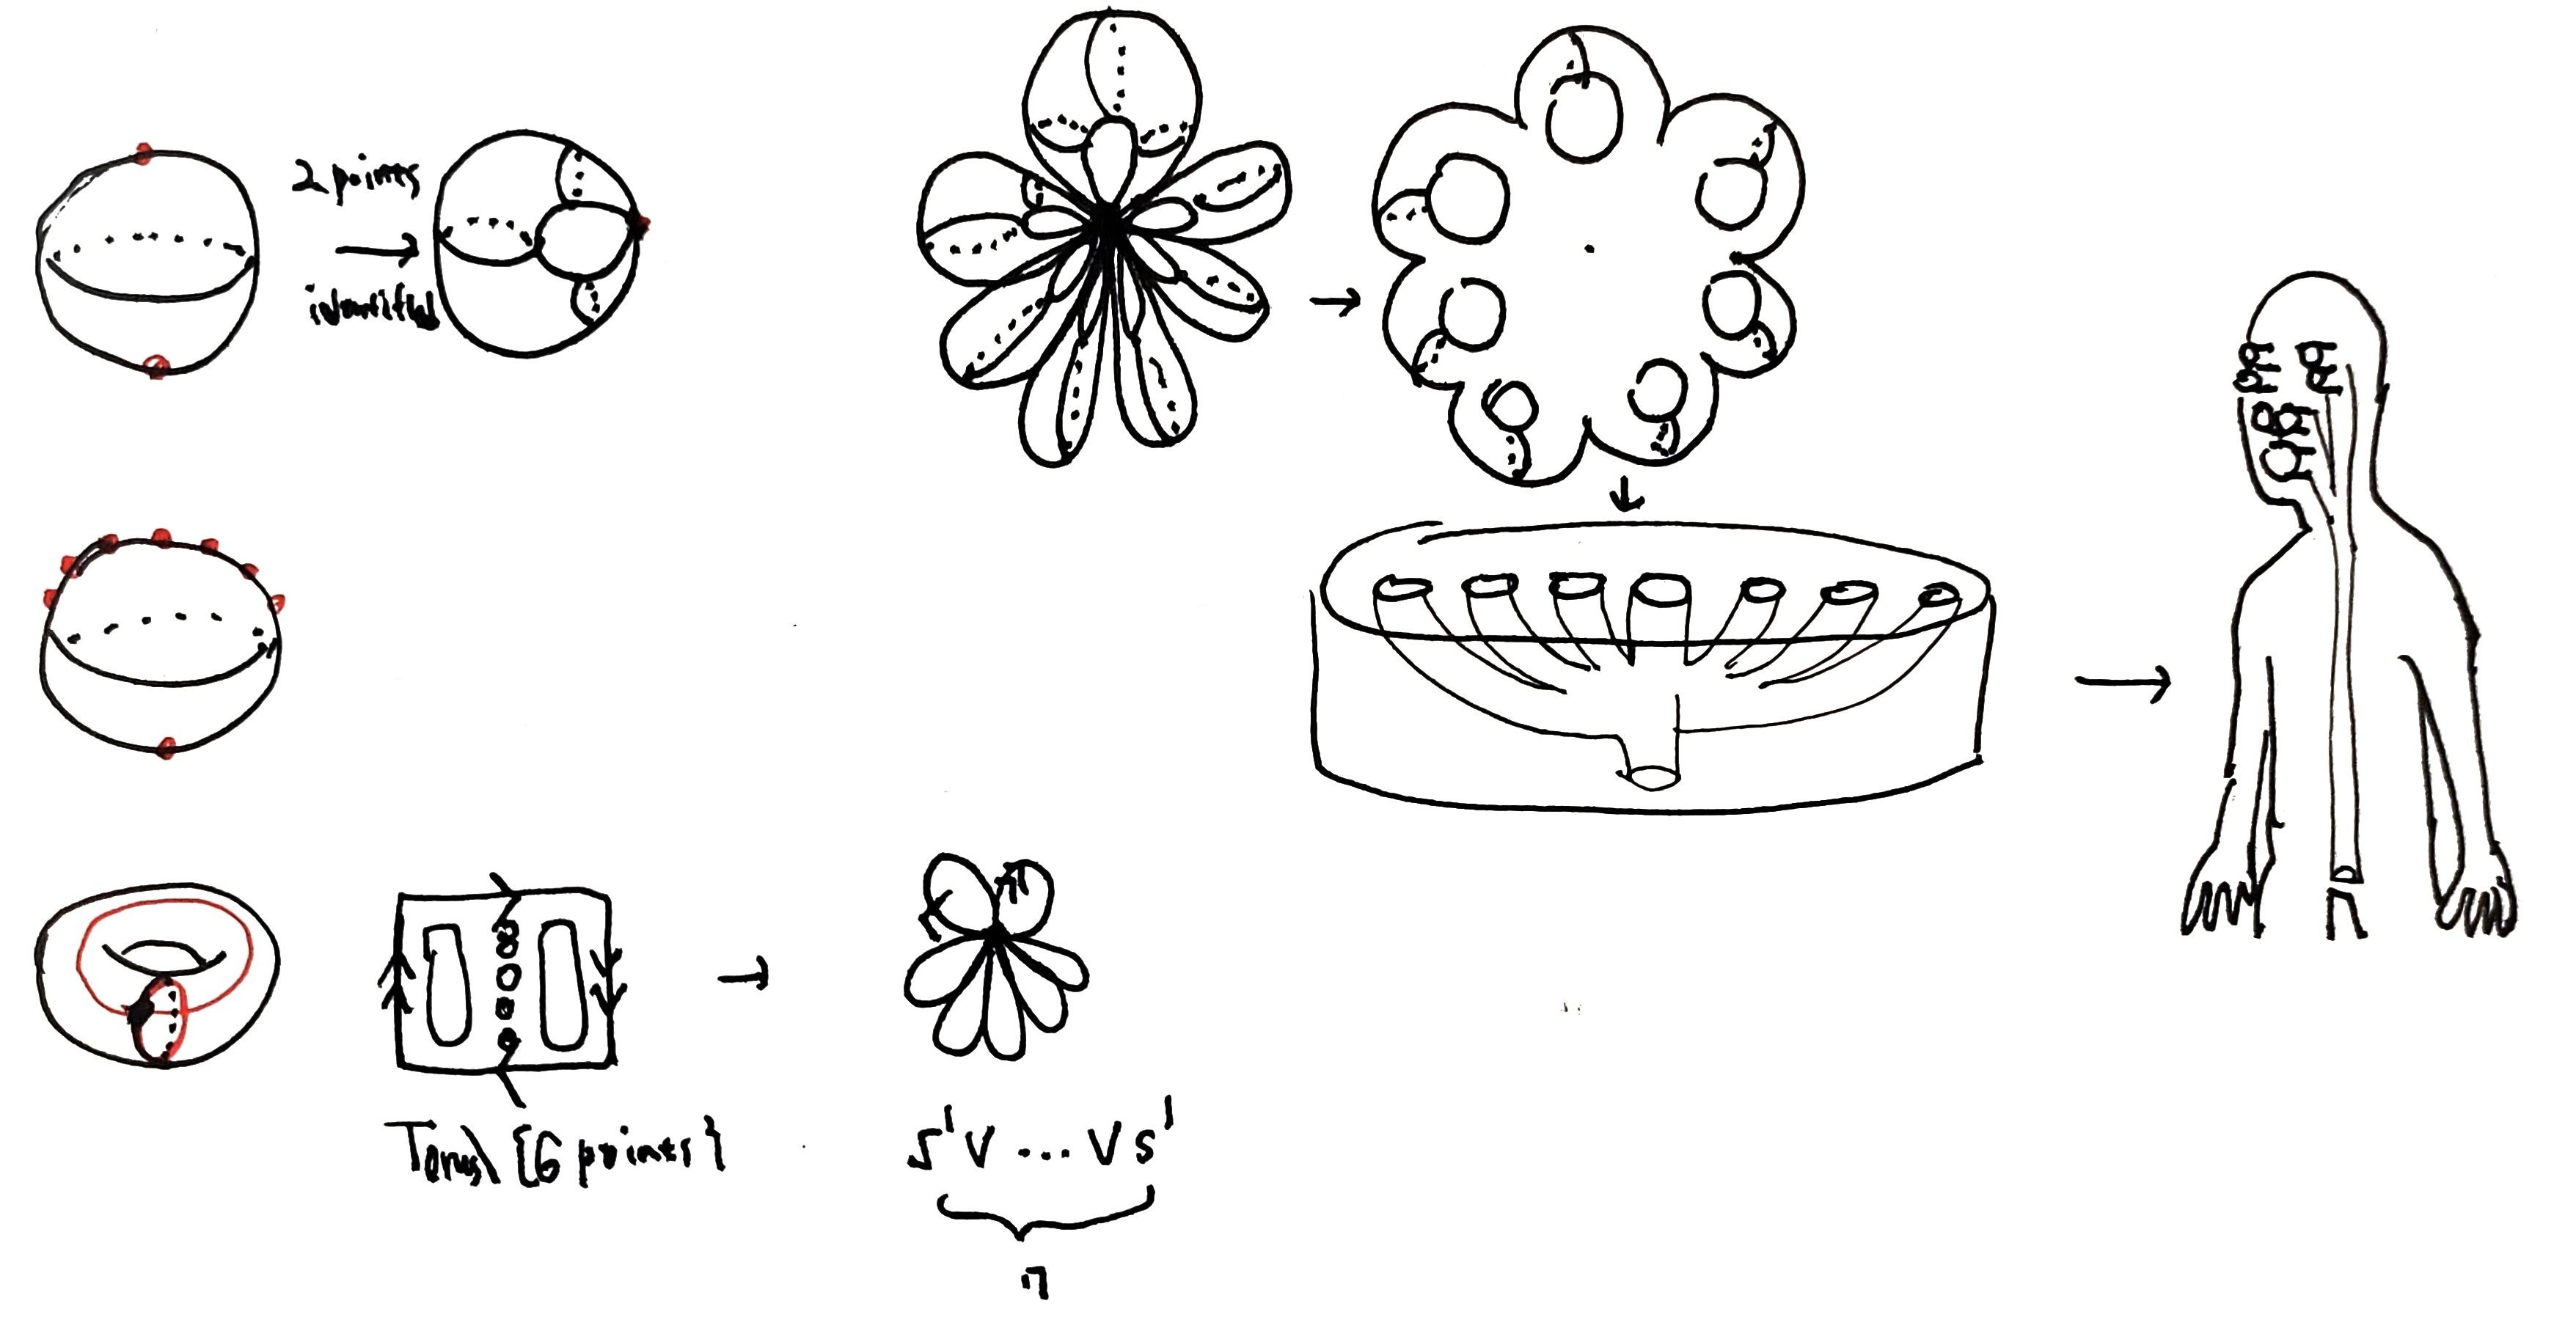 2 points
identified
Torus\ {6 points}
S¹ ∨ ... ∨ S¹
7